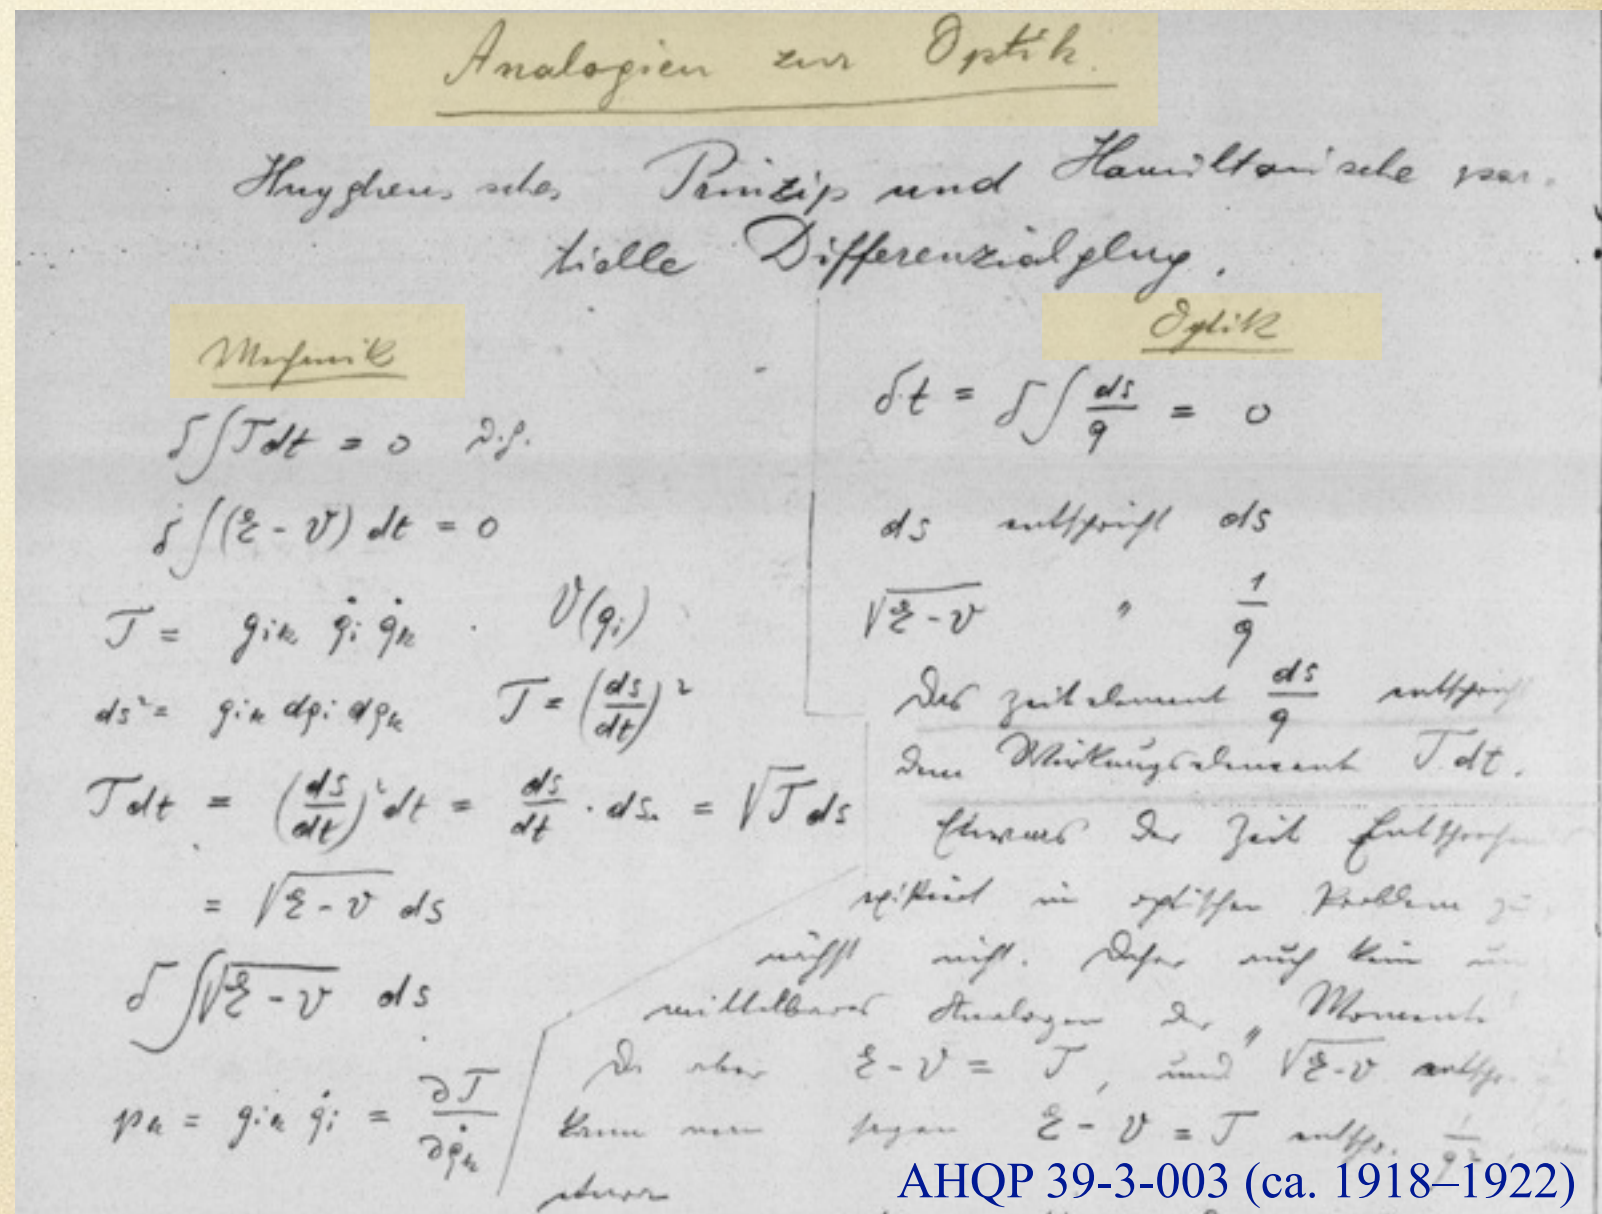 Analogien zur Optik.
Huyghenssches Prinzip und Hamiltonische par-
tielle Differenzialglng.
Mechanik
δ∫T dt = 0 d.h.
δ∫(E - V) dt = 0
T = gik q̇i q̇k . V(qi)
ds² = gik dqi dqk T = (ds/dt)²
T dt = (ds/dt)² dt = ds/dt · ds = √T ds
= √(E - V) ds
δ∫√(E - V) ds
pk = gik q̇i = ∂T/∂q̇k
Optik
δt = δ∫ ds/q = 0
ds entspricht ds
√(E - V) " 1/q
Das Zeitelement ds/q entspricht
dem Wirkungselement T dt.
Etwas der Zeit
existiert im optischen Problem zu
nächst nicht. Daher auch kein un
mittelbares Analogon der „Momente
Da aber E - V = T, und √(E - V) entspr.
kann man sagen E - V = T entspr. 1/q²,
AHQP 39-3-003 (ca. 1918–1922)